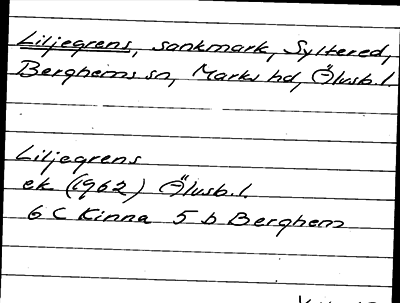 Liljegrens, sankmark, Syltered,
Berghems sn, Marks hd, Älvsb.l.
Liljegrens
ek (1962) Älvsb.l.
6 C Kinna 5 b Berghem